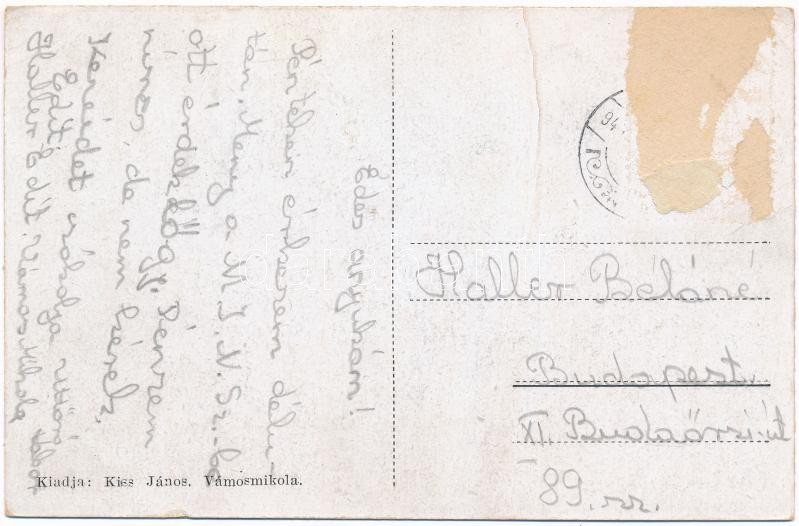 Édes anyukám!
Pénteken érkezem délu-
tán. Menj a M.I.N.Sz.-be
ott érdeklőgj. Pénzem
nincs, de nem kérek.
Kezeidet csókolja
Edit
Haller Edit Vámosmikola
Kiadja: Kiss János. Vámosmikola.
94
Haller Béláné
Budapest.
XI. Budaörsi út
89. sz.